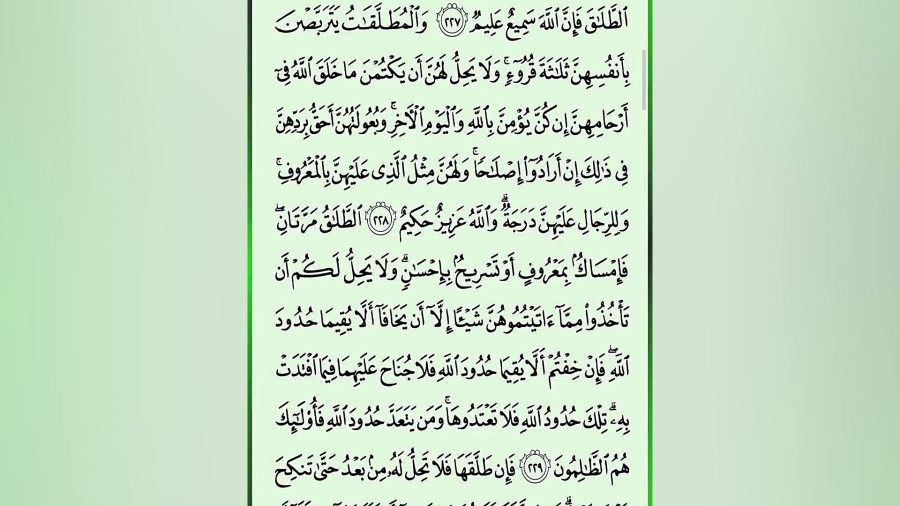 ٱلطَّلَٰقَ فَإِنَّ ٱللَّهَ سَمِيعٌ عَلِيمٌ ٢٢٧ وَٱلْمُطَلَّقَٰتُ يَتَرَبَّصْنَ
بِأَنفُسِهِنَّ ثَلَٰثَةَ قُرُوٓءٍ ۚ وَلَا يَحِلُّ لَهُنَّ أَن يَكْتُمْنَ مَا خَلَقَ ٱللَّهُ فِىٓ
أَرْحَامِهِنَّ إِن كُنَّ يُؤْمِنَّ بِٱللَّهِ وَٱلْيَوْمِ ٱلْءَاخِرِ ۚ وَبُعُولَتُهُنَّ أَحَقُّ بِرَدِّهِنَّ
فِى ذَٰلِكَ إِنْ أَرَادُوٓا۟ إِصْلَٰحًا ۚ وَلَهُنَّ مِثْلُ ٱلَّذِى عَلَيْهِنَّ بِٱلْمَعْرُوفِ ۚ
وَلِلرِّجَالِ عَلَيْهِنَّ دَرَجَةٌ ۗ وَٱللَّهُ عَزِيزٌ حَكِيمٌ ٢٢٨ ٱلطَّلَٰقُ مَرَّتَانِ ۖ
فَإِمْسَاكٌۢ بِمَعْرُوفٍ أَوْ تَسْرِيحٌۢ بِإِحْسَٰنٍ ۗ وَلَا يَحِلُّ لَكُمْ أَن
تَأْخُذُوا۟ مِمَّآ ءَاتَيْتُمُوهُنَّ شَيْـًٔا إِلَّآ أَن يَخَافَآ أَلَّا يُقِيمَا حُدُودَ
ٱللَّهِ ۖ فَإِنْ خِفْتُمْ أَلَّا يُقِيمَا حُدُودَ ٱللَّهِ فَلَا جُنَاحَ عَلَيْهِمَا فِيمَا ٱفْتَدَتْ
بِهِۦ ۗ تِلْكَ حُدُودُ ٱللَّهِ فَلَا تَعْتَدُوهَا ۚ وَمَن يَتَعَدَّ حُدُودَ ٱللَّهِ فَأُو۟لَٰٓئِكَ
هُمُ ٱلظَّٰلِمُونَ ٢٢٩ فَإِن طَلَّقَهَا فَلَا تَحِلُّ لَهُۥ مِنۢ بَعْدُ حَتَّىٰ تَنكِحَ